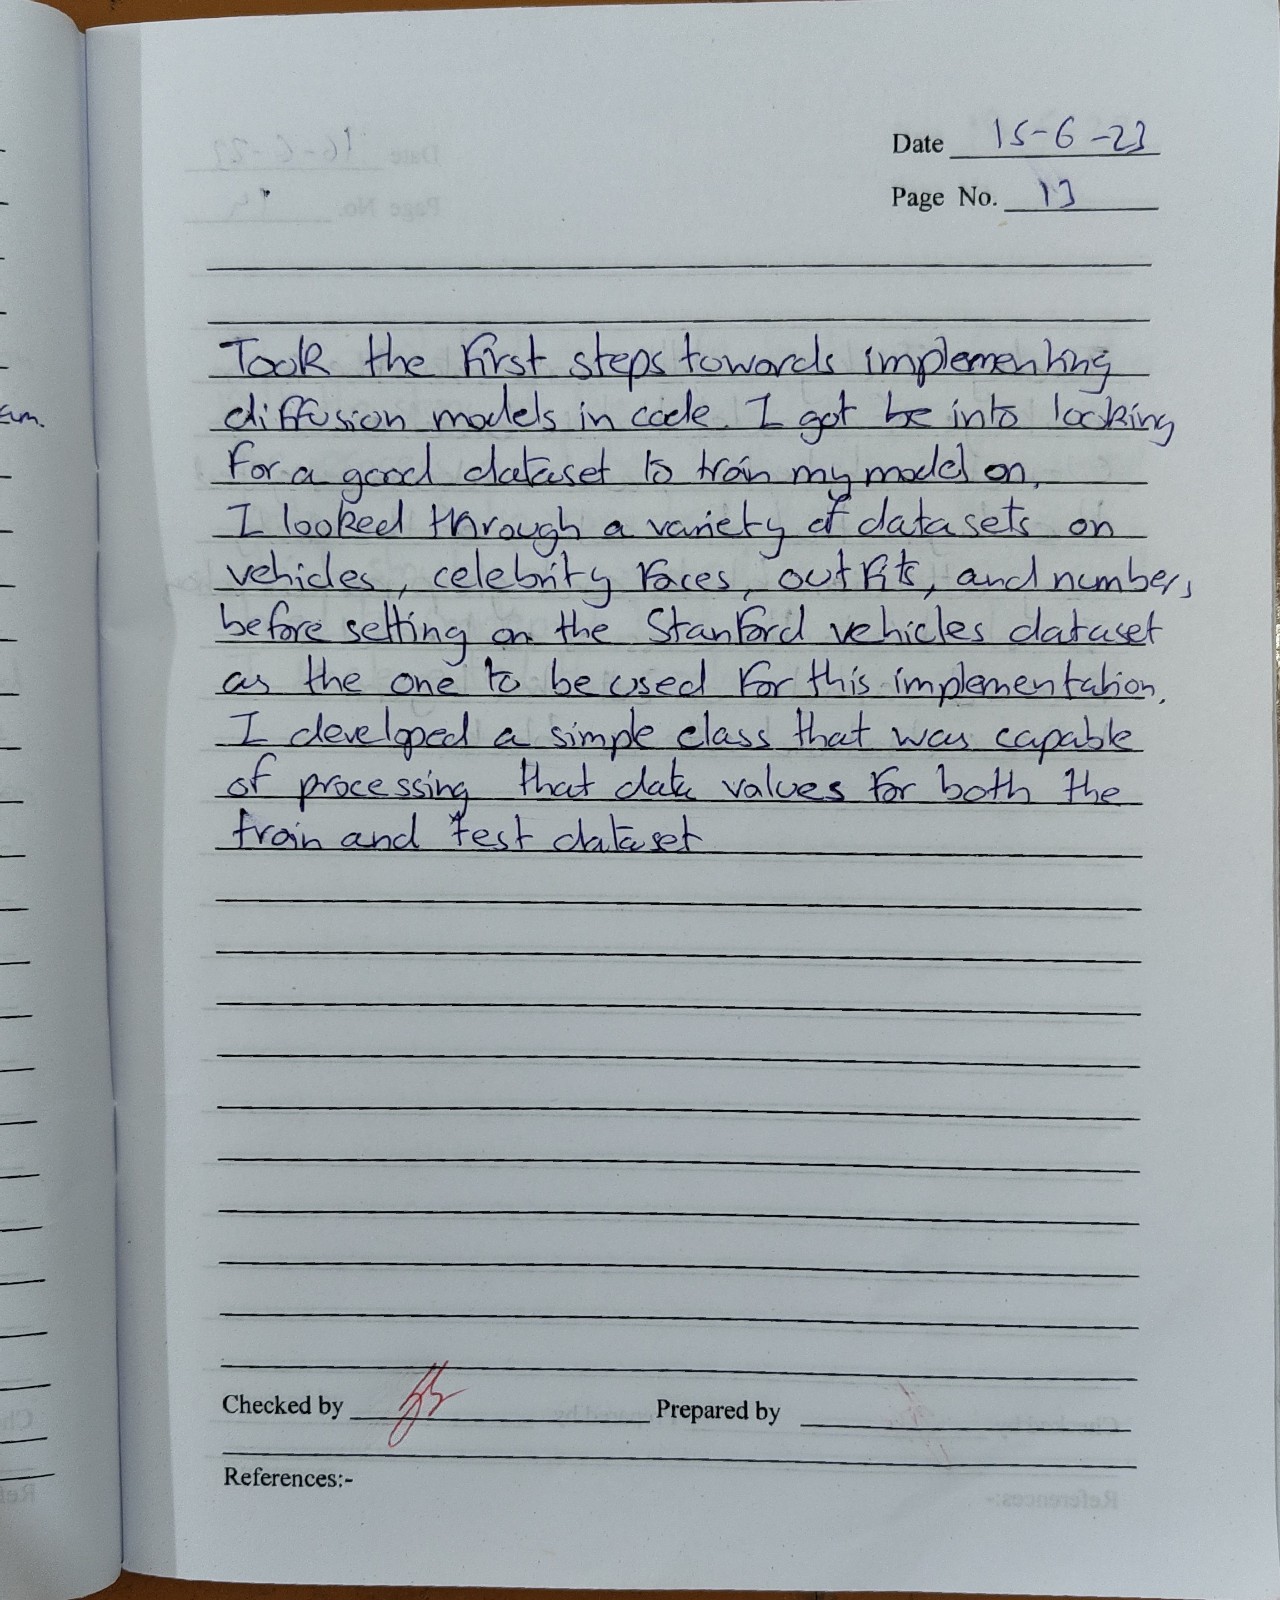 Date 15-6-23
Page No. 13
Took the first steps towards implementing
diffusion models in code. I got be into looking
for a good dataset to train my model on.
I looked through a variety of datasets on
vehicles, celebrity faces, outfits, and numbers,
before setting on the Stanford vehicles dataset
as the one to be used for this implementation.
I developed a simple class that was capable
of processing that data values for both the
train and test dataset
Checked by Prepared by
References:-